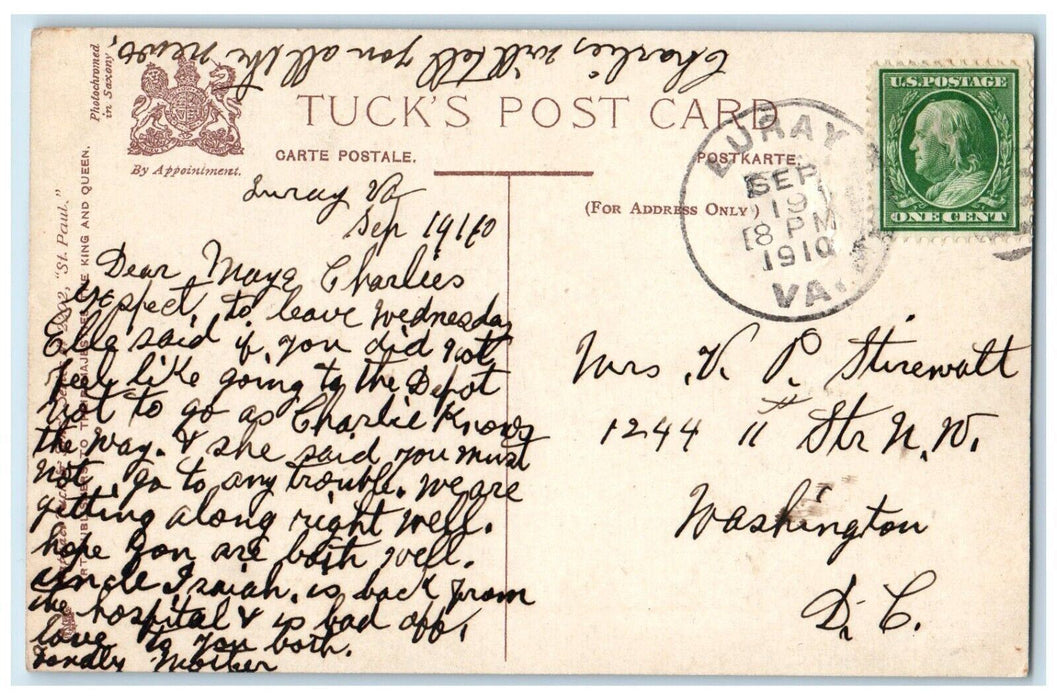 Charlies will tell you all the news.
Photochromed
in Saxony
TUCK'S POST CARD
By Appointment.
CARTE POSTALE.
POSTKARTE.
(FOR ADDRESS ONLY)
2282, "St. Paul."
TO THEIR MAJESTIES THE KING AND QUEEN.
U.S. POSTAGE
ONE CENT
LURAY
SEP
19
8 PM
1910
VA.
Luray Va
Sep 19 1910
Dear Maye Charlies
expect to leave Wednesday
said if you did not
feel like going to the Depot
not to go as Charlie Knows
the way. & she said you must
not go to any trouble. we are
getting along right well.
hope you are both well.
uncle Isaiah is back from
the hospital & is bad off,
love to you both.
fondly Mother
Mrs. V. P. Stirewalt
1244 11th Str N.W.
Washington
D. C.